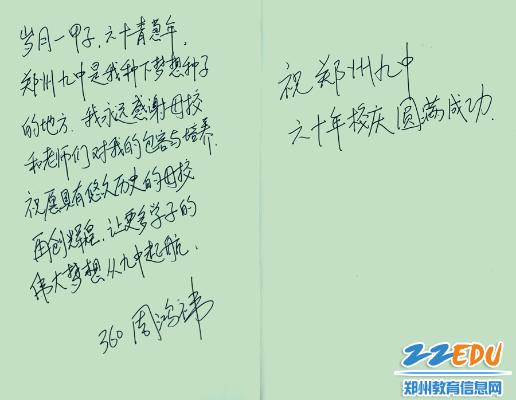 岁月一甲子，六十菁葱年，
郑州九中是我种下梦想种子
的地方．我永远感谢母校
和老师们对我的包容与培养．
祝愿具有悠久历史的母校
再创辉煌，让更多学子的
伟大梦想从九中起航．
360 周鸿祎
祝郑州九中
六十年校庆圆满成功．
ZZEDU
郑州教育信息网